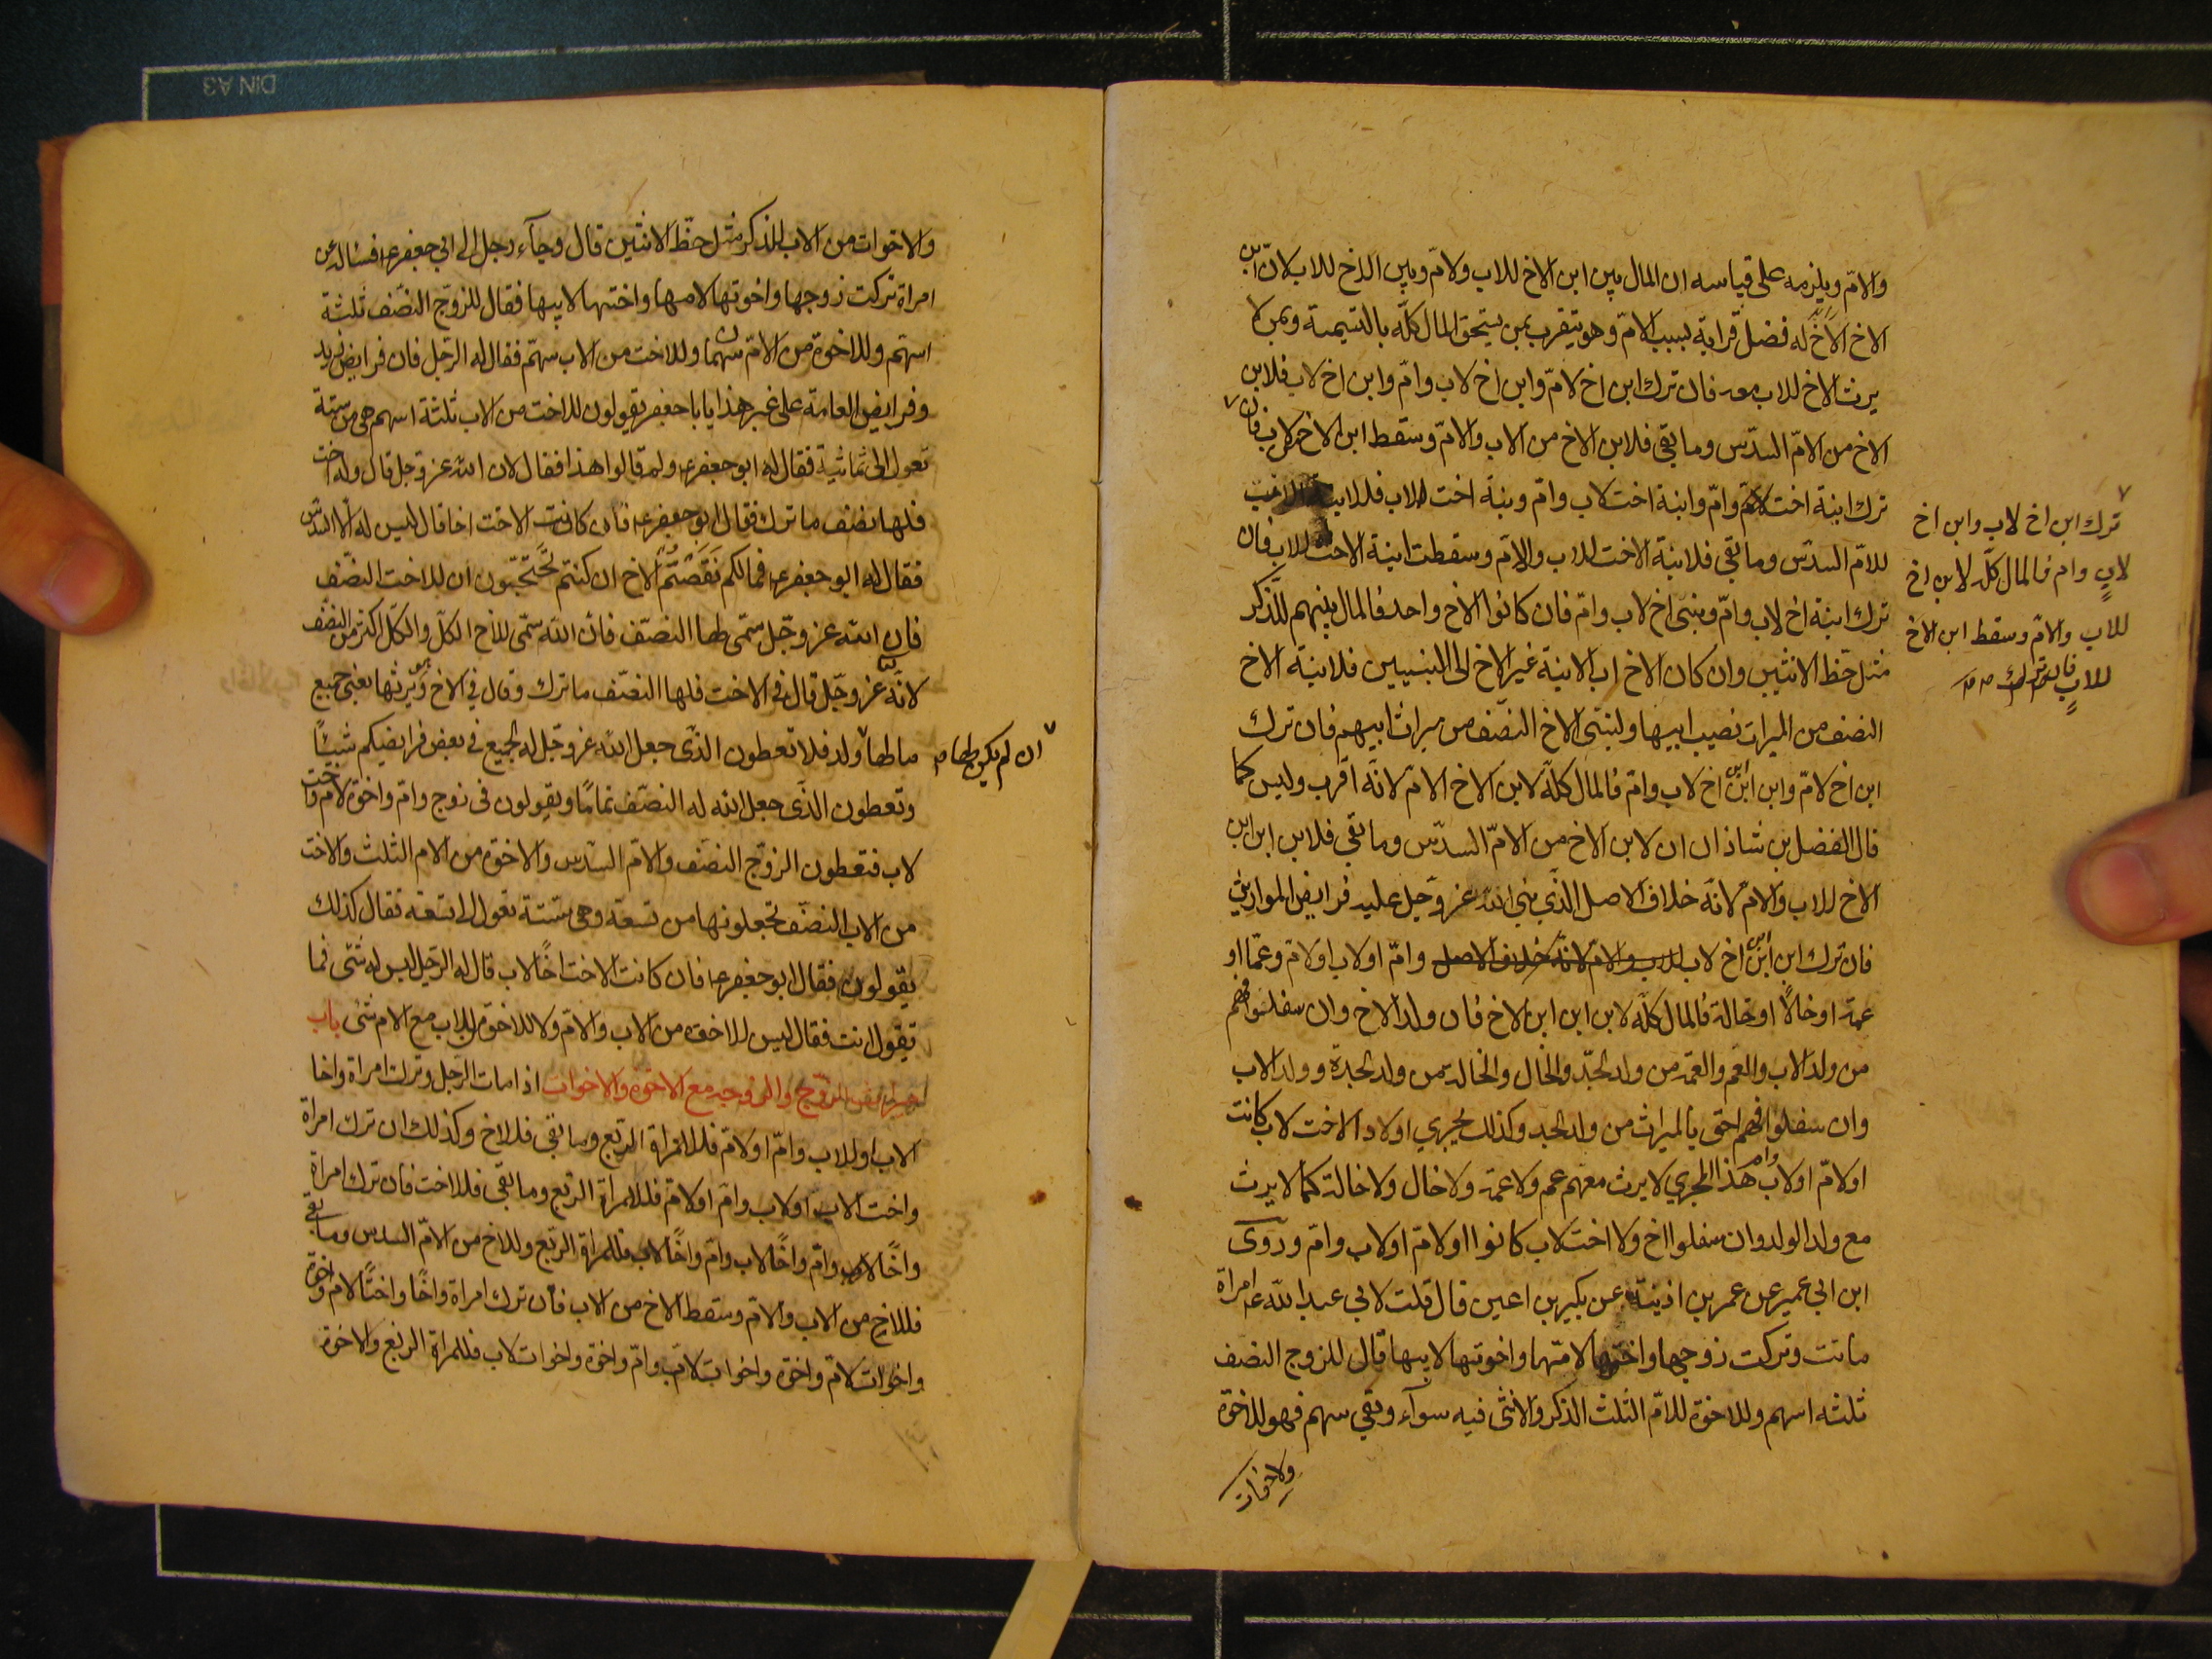 والامّ ويلزمه على قياسه ان المال بين ابن الاخ للاب ولامّ وبين الاخ للاب لانّ ابن
الاخ الاخ له فضل قرابة بسبب الامّ وهو يتقرب بمن يستحق المال كلّه بالتسمية وبمن لا
يرث الاخ للاب معه فان ترك ابن اخ لامّ وابن اخ لاب وامّ وابن اخ لاب فلابن
الاخ من الامّ السدس وما بقي فلابن الاخ من الاب والامّ وسقط ابن الاخ للاب فان
ترك ابنة اخت لامّ وابنة اخت لاب وامّ وبنة اخت لاب فلابنة الاخت
للامّ السدس وما بقي فلابنة الاخت للاب والامّ وسقطت ابنة الاخت للاب فان
ترك ابنة اخ لاب وامّ وبنتي اخ لاب وامّ فان كانوا الاخ واحد فالمال بينهم للذكر
مثل حظ الانثيين وان كان الاخ اب الابنة غير الاخ الى البنتيين فلابنة الاخ
النصف من الميراث نصيب ابيها ولبنتي الاخ النصف من ميراث ابيهم فان ترك
ابن اخ لامّ وابن ابن ابن اخ لاب وامّ فالمال كلّه لابن الاخ الامّ لانّه اقرب وليس كما
قال الفضل بن شاذان ان لابن الاخ من الامّ السدس وما بقي فلابن ابن ابن
الاخ للاب والامّ لانّه خلاف الاصل الذي بنى الله عز وجل عليه فرايض المواريث
فان ترك ابن ابن ابن اخ لاب للاب والامّ لانّه خلاف الاصل وامّ او لاب او لامّ وعمّا او
عمة او خالا او خالة فالمال كلّه لابن ابن ابن الاخ فان ولد الاخ وان سفلوا فهم
من ولد الاب والعم والعمّة من ولد الجدّ والخال والخالة من ولد الجدة وولد الاب
وان سفلوا فهم احق بالميراث من ولد الجد وكذلك يجري اولاد الاخت لاب كانت
او لامّ او لاب وام هذا المجري لا يرث معهم عم ولا عمة ولا خال ولا خالة كما لا يرث
مع ولد الولد وان سفلوا اخ ولا اخت لاب كانوا او لامّ او لاب وامّ وروى
ابن ابي عمير عن عمر بن اذينة عن بكير بن اعين قال قلت لابي عبد الله ع امراة
ماتت وتركت زوجها واختها لامّها واخوتها لابيها قال للزوج النصف
ثلثه اسهم وللاخوة للامّ الثلث الذكر والانثى فيه سوآء وبقي سهم فهو للاخوة
والاخوات
ترك ابن اخ لاب وابن اخ
لاب وام فالمال كلّه لابن اخ
للاب والامّ وسقط ابن الاخ
للاب
والاخوات من الاب للذكر مثل حظ الانثيين قال وجآء رجل الى ابي جعفر ع فساله عن
امراة تركت زوجها واخوتها لامها واختها لابيها فقال للزوج النصف ثلثة
اسهم وللاخوة من الامّ سهمان وللاخت من الاب سهم فقال له الرجل فان فرايض زيد
وفرايض العامة على غير هذا يا با جعفر يقولون للاخت من الاب ثلثة اسهم هي من ستة
تعول الى ثمانية فقال له ابو جعفر ع ولم قالوا هذا فقال لان الله عز وجل قال وله اخت
فلها نصف ما ترك فقال ابو جعفر ع فان كانت الاخت اخا قال ليس له الا السدس
فقال له ابو جعفر ع فما لكم نقصتم الاخ ان كنتم تحتجّون ان للاخت النصف
فان الله عز وجل سمّى لها النصف فان الله سمّى للاخ الكلّ والكلّ اكثر من النصف
لانّه عز وجل قال في الاخت فلها النصف ما ترك وقال في الاخ وهو يرثها يعني جميع
مالها ولد فلا تعطون الذي جعل الله عز وجل له الجميع في بعض فرايضكم شيئا
وتعطون الذي جعل الله له النصف تامّا ويقولون في زوج وامّ واخوة لامّ واخت
لاب فتعطون الزوج النصف والامّ السدس والاخوة من الام الثلث والاخت
من الاب النصف تجعلونها من تسعة وهي ستة تعول الى تسعة فقال كذلك
يقولون فقال ابو جعفر ع فان كانت الاخت اخًا لاب قال له الرجل ليس له شي فما
تقول انت فقال ليس للاخوة من الاب والامّ ولا للاخوة للاب مع الام شي باب
ميراث الزوج والزوجة مع الاخوة والاخوات اذا مات الرجل وترك امراة واخا
لاب او للاب وامّ او لامّ فللامراة الربع وما بقي فللاخ وكذلك ان ترك امراة
واخت لاب او لاب وامّ او لامّ فللامراة الربع وما بقي فللاخت فان ترك امراة
واخًا لاب وامّ واخًا لاب وامّ واخًا لاب فللمراة الربع وللاخ من الامّ السدس وما بقي
فللاخ من الاب والامّ وسقط الاخ من الاب فان ترك امراة واخًا واختًا لام واخوة
واخوات لامّ واخوة واخوات لاب وامّ واخوة واخوات لاب فللمراة الربع والاخوة
ان لم يكن لها